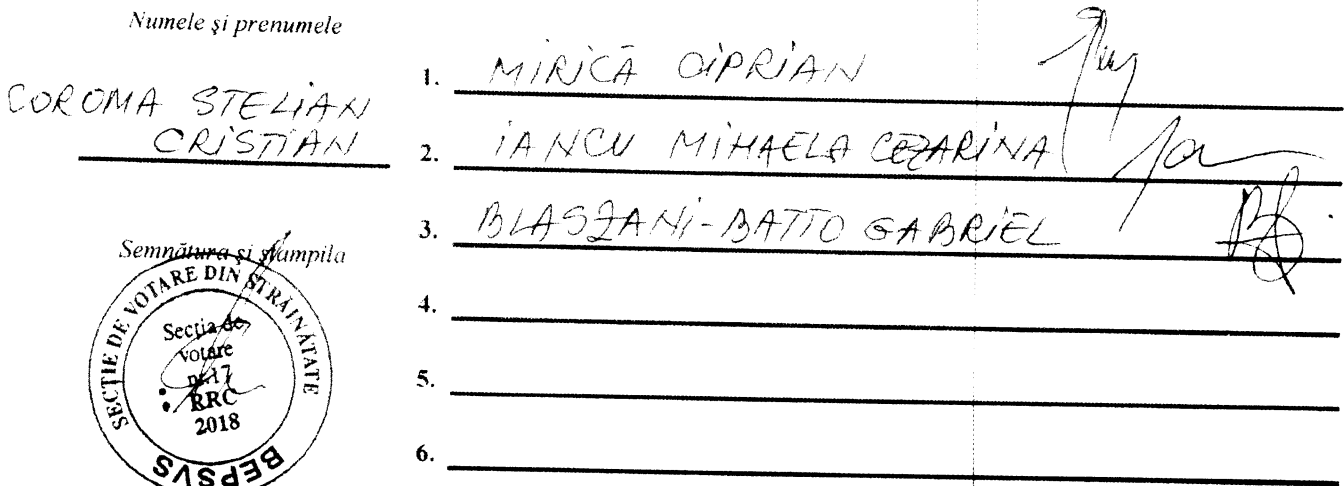 Numele și prenumele
COROMA STELIAN
CRISTIAN
Semnătura și ștampila
SECȚIE DE VOTARE DIN STRĂINĂTATE
Secția de
votare
nr.17
RRC
2018
BEPSVS
1. MIRICĂ CIPRIAN
2. IANCU MIHAELA CEZARINA
3. BLASZANI-BATTO GABRIEL
4.
5.
6.